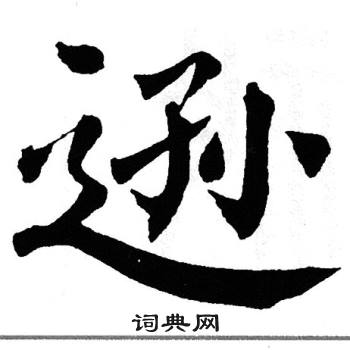 逊
词典网